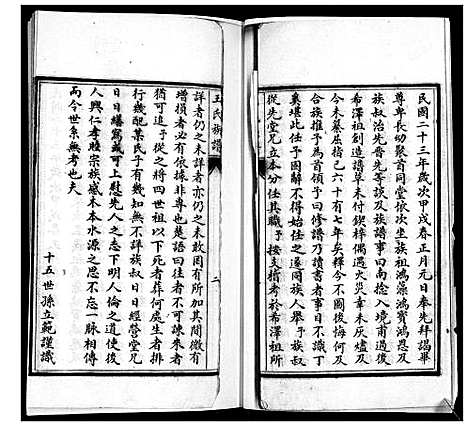 民國二十三年歲次甲戌春正月元日奉先拜謁畢
尊卑長幼聚首同堂依次坐族祖鴻藻鴻賓鴻恩及
族叔治先普先等談及族譜事曰南捻肆虐甫退後
希澤祖創造譜草未付鍥梓偶遇火災幸未灰燼及
今未纂屈指已六十有七年矣釋今不圖後悔何及
合族推予為首領予曰修譜乃讀書者事目不識丁
奚堪此任予固辭不得始任之遂同族人舉予族叔
從先堂兄立本分任其職予按支稽考於希澤祖所
王氏族譜
二
詳者仍之未詳者亦仍之未敢罔有所加其間微有
增損者必有依據非尊也楚語曰往者不可諫來者
猶可追予從之將四世祖以下死者葬何處生者排
行幾配某氏子有幾知無不詳族叔日日經營族兄
日日繕寫或可上慰先人之志下明人倫之道使後
人興仁孝睦宗族感木本水源之思不忘一脈相傳
而今世系無考也夫
十五世孫立範謹識